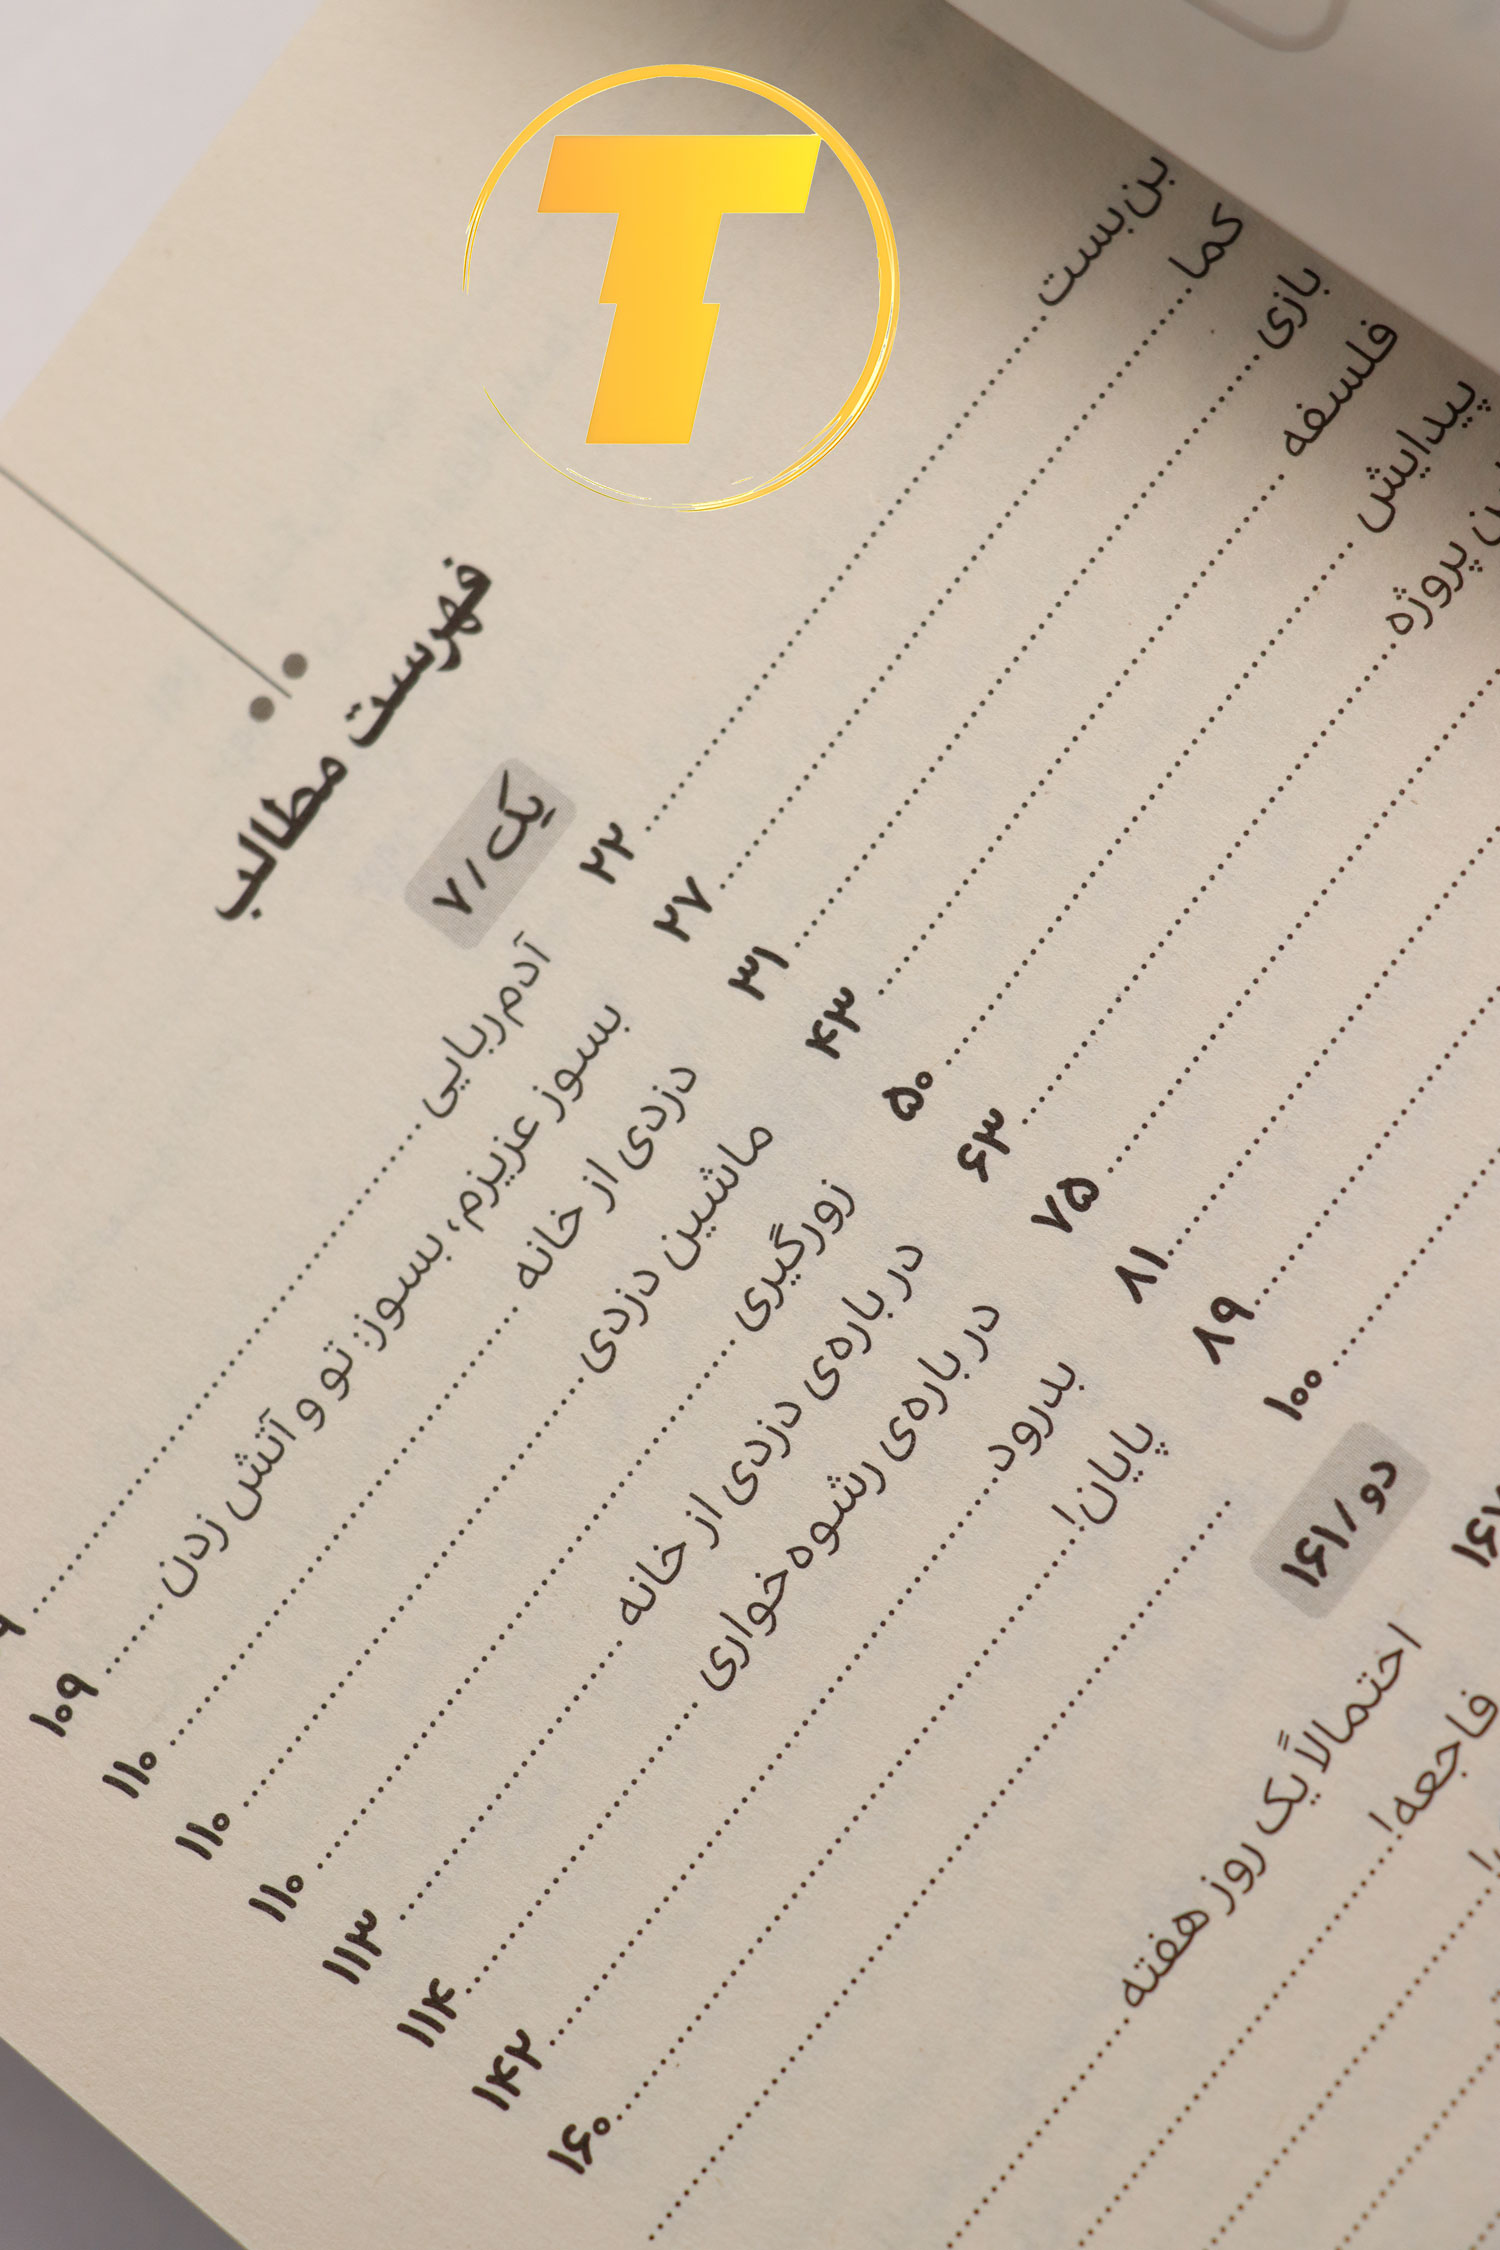 فهرست مطالب
یک / ۷
بن‌بست ........ ۲۲
کما ........ ۲۷
بازی ........ ۳۱
فلسفه ........ ۴۳
پیدایش ........ ۵۰
پروژه ........ ۶۳
........ ۷۵
........ ۸۱
........ ۸۹
........ ۱۰۰
آدم‌ربایی ........
بسوز عزیزم، بسوز: تو و آتش زدن ........ ۱۰۹
دزدی از خانه ........ ۱۱۰
ماشین دزدی ........ ۱۱۰
زورگیری ........ ۱۱۰
در باره‌ی دزدی از خانه ........ ۱۱۳
در باره‌ی رشوه‌خواری ........ ۱۱۴
بدرود ........ ۱۴۲
پایان! ........ ۱۶۰
دو / ۱۶۱
احتمالاً یک روز هفته ........
فاجعه! ........